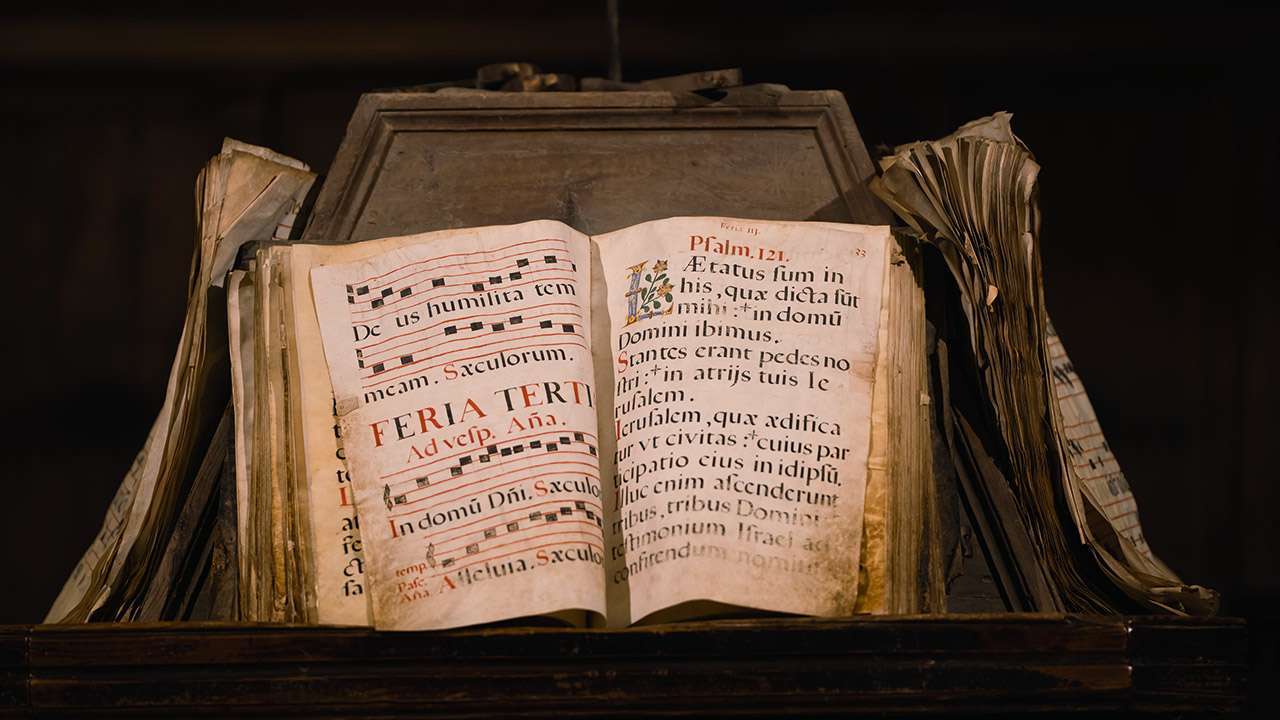 De us humilita tem
meam. Sæculorum.
FERIA TERTI
Ad vesp. Aña.
In domũ Dñi. Sæculo
temp.
Pasc.
Aña.
Alleluia. Sæculo
Feria iij.
33
Psalm. 121.
LÆtatus sum in
his, quæ dicta sũt
mihi :+ in domũ
Domini ibimus.
Stantes erant pedes no
stri :+ in atrijs tuis Ie
rusalem.
Ierusalem, quæ ædifica
tur vt civitas :+ cuius par
ticipatio eius in idipsũ.
Illuc enim ascenderunt
tribus, tribus Domini :+
testimonium Israel ad
confitendum nomini